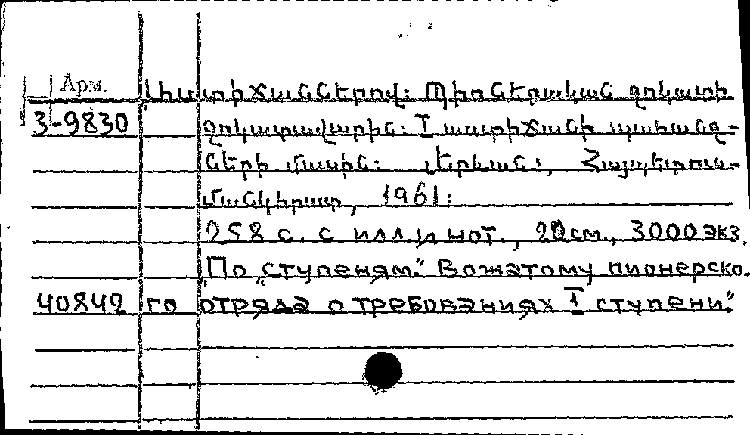 Арм.
Աստիճաններով: Պիոներական ջոկատի
3-9830 ջոկատավարին: I աստիճանի պահանջ-
ների մասին: Երևան, Հայպետուս-
մանկհրատ, 1961:
258 с. с илл. и нот., 20 см., 3000 экз.
"По "ступеням." Вожатому пионерско-
40842 го отряда о требованиях I ступени".